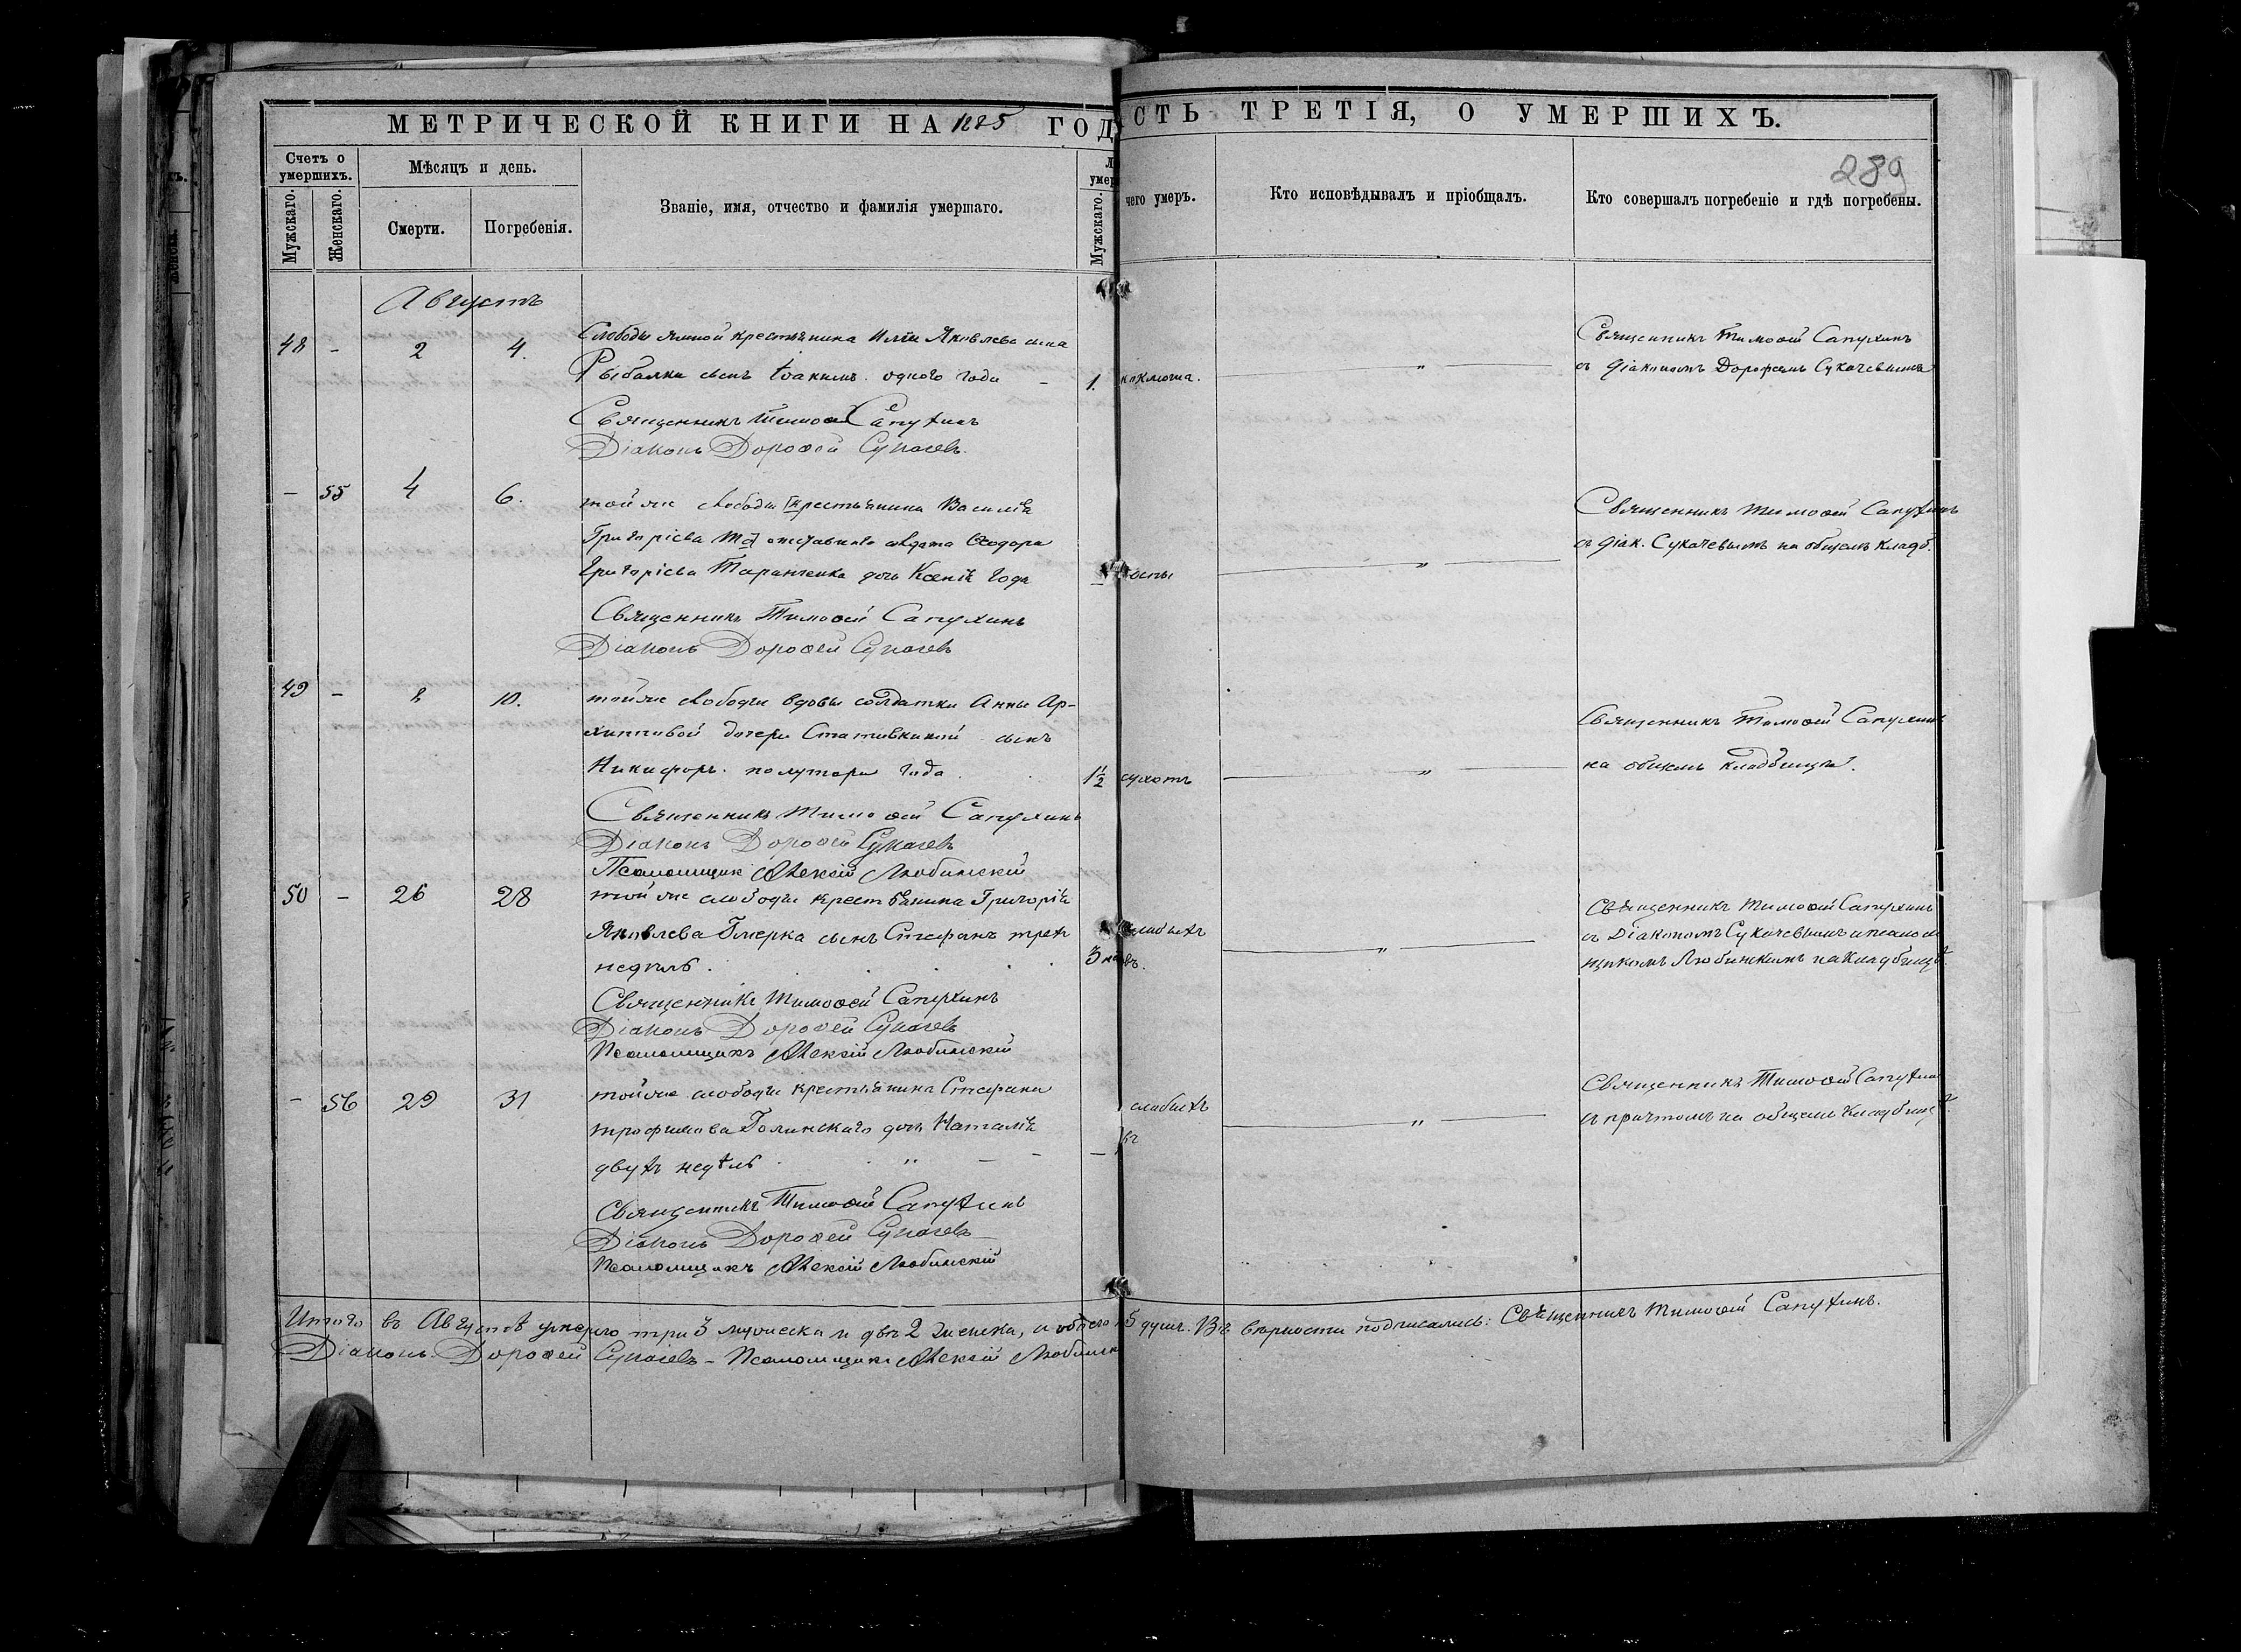 МЕТРИЧЕСКОЙ КНИГИ НА 1885 ГОД
СТЬ ТРЕТІЯ, О УМЕРШИХЪ.
289
Счетъ о умершихъ.
Мужскаго.
Женскаго.
Мѣсяцъ и день.
Смерти.
Погребенія.
Званіе, имя, отчество и фамилія умершаго.
Л
умер
Мужскаго.
чего умеръ.
Кто исповѣдывалъ и пріобщалъ.
Кто совершалъ погребеніе и гдѣ погребены.
Августъ
48 - 2 4.
Слободы Ямной крестьянина Иліи Яковлева сына
Рыбалки сынъ Іоакимъ. одного года - 1. коклюша. „
Священникъ Тимоѳей Сапухинъ
съ діакономъ Дороѳеемъ Сукачевымъ
Священникъ Тимоѳей Сапухинъ
Діаконъ Дороѳей Сукачевъ.
- 55 4 6.
той же слободы крестьянина Василія
Григорієва отставнаго солдата Ѳеодора
Григорієва Таранченка дочь Ксенія года - оспы „
Священникъ Тимоѳей Сапухинъ
съ діак. Сукачевымъ на общемъ кладб.
Священникъ Тимоѳей Сапухинъ
Діаконъ Дороѳей Сукачевъ
49 - 8 10.
той же слободы вдовы солдатки Анны Ар-
хиповой дочери сынъ
Никифоръ. полутора года. 1½ сухотъ „
Священникъ Тимоѳей Сапухинъ
на общемъ кладбищѣ.
Священникъ Тимоѳей Сапухинъ
Діаконъ Дороѳей Сукачевъ
Псаломщикъ Алексій Любинскій
50 - 26 28
той же слободы крестьянина Григорія
Яковлева сынъ Стефанъ трехъ
недѣль. 3 „
Священникъ Тимоѳей Сапухинъ
съ Діакономъ Сукачевымъ и псалом
щикомъ Любинскимъ на кладбищѣ.
Священникъ Тимоѳей Сапухинъ
Діаконъ Дороѳей Сукачевъ
Псаломщикъ Алексій Любинскій
- 56 29 31
той же слободы крестьянина Стефана
Трофимова Голинскаго дочь Наталія
двухъ недѣль „ - - - „
Священникъ Тимоѳей Сапухинъ
съ причтомъ на общемъ кладбищѣ.
Священникъ Тимоѳей Сапухинъ
Діаконъ Дороѳей Сукачевъ
Псаломщикъ Алексій Любинскій
Итого въ Августѣ умерло три 3 мужеска и двѣ 2 женска, а обоего 5 душъ. Въ вѣрности подписались: Священникъ Тимоѳей Сапухинъ.
Діаконъ Дороѳей Сукачевъ - Псаломщикъ Алексій Любинск